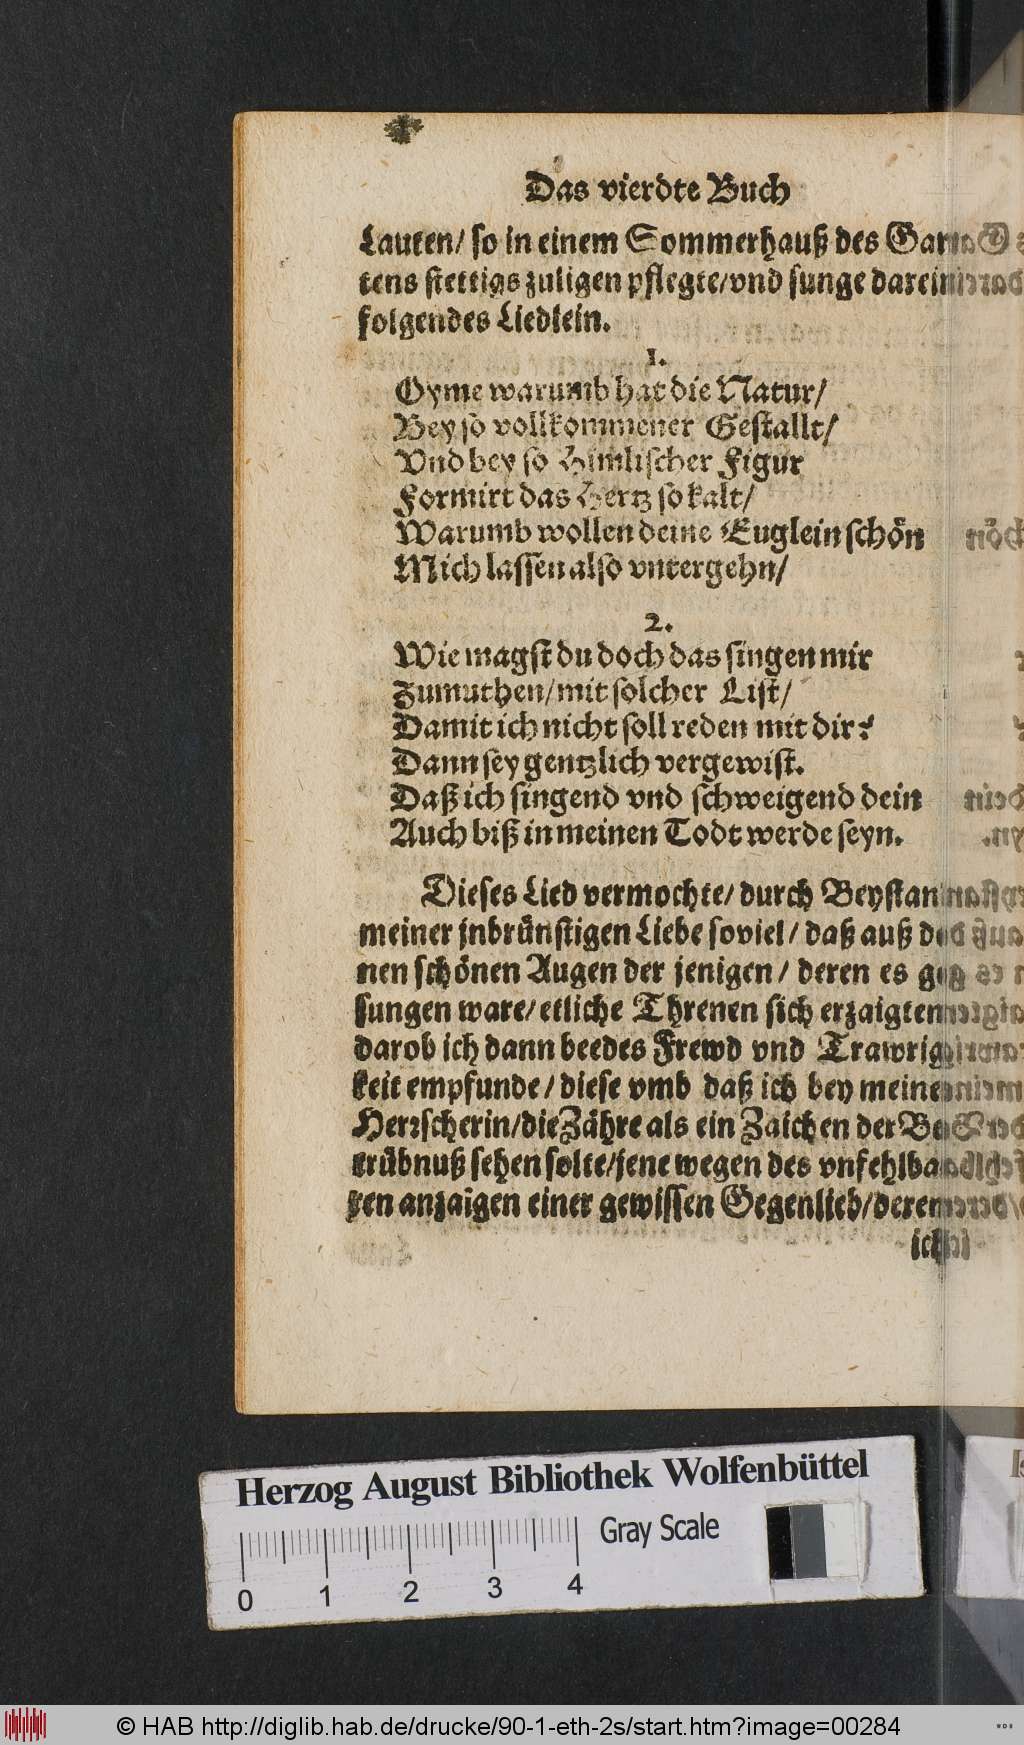 Das vierdte Buch
Lauten/ so in einem Sommerhauß des Gar-
tens stettigs zuligen pflegte/vnd sunge darein
folgendes Liedlein.
1.
Oyme warumb hat die Natur/
Bey so vollkommener Gestallt/
Vnd bey so Himlischer Figur
Formirt das Hertz so kalt/
Warumb wollen deine Euglein schön
Mich lassen also vntergehn/
2.
Wie magst du doch das singen mir
Zumuthen/mit solcher List/
Damit ich nicht soll reden mit dir?
Dann sey gentzlich vergewist.
Daß ich singend vnd schweigend dein
Auch biß in meinen Todt werde seyn.
Dieses Lied vermochte/ durch Beystan
meiner jnbrünstigen Liebe soviel/ daß auß
nen schönen Augen der jenigen/ deren es
sungen ware/ etliche Threnen sich erzaigten
darob ich dann beedes Frewd vnd Trawrig
keit empfunde/ diese vmb daß ich bey meiner
Herrscherin/die Zähre als ein Zaichen der
trübnuß sehen solte/jene wegen des vnfehlba
ren anzaigen einer gewissen Gegenlieb/deren
ich
Herzog August Bibliothek Wolfenbüttel
Gray Scale
0 1 2 3 4
© HAB http://diglib.hab.de/drucke/90-1-eth-2s/start.htm?image=00284